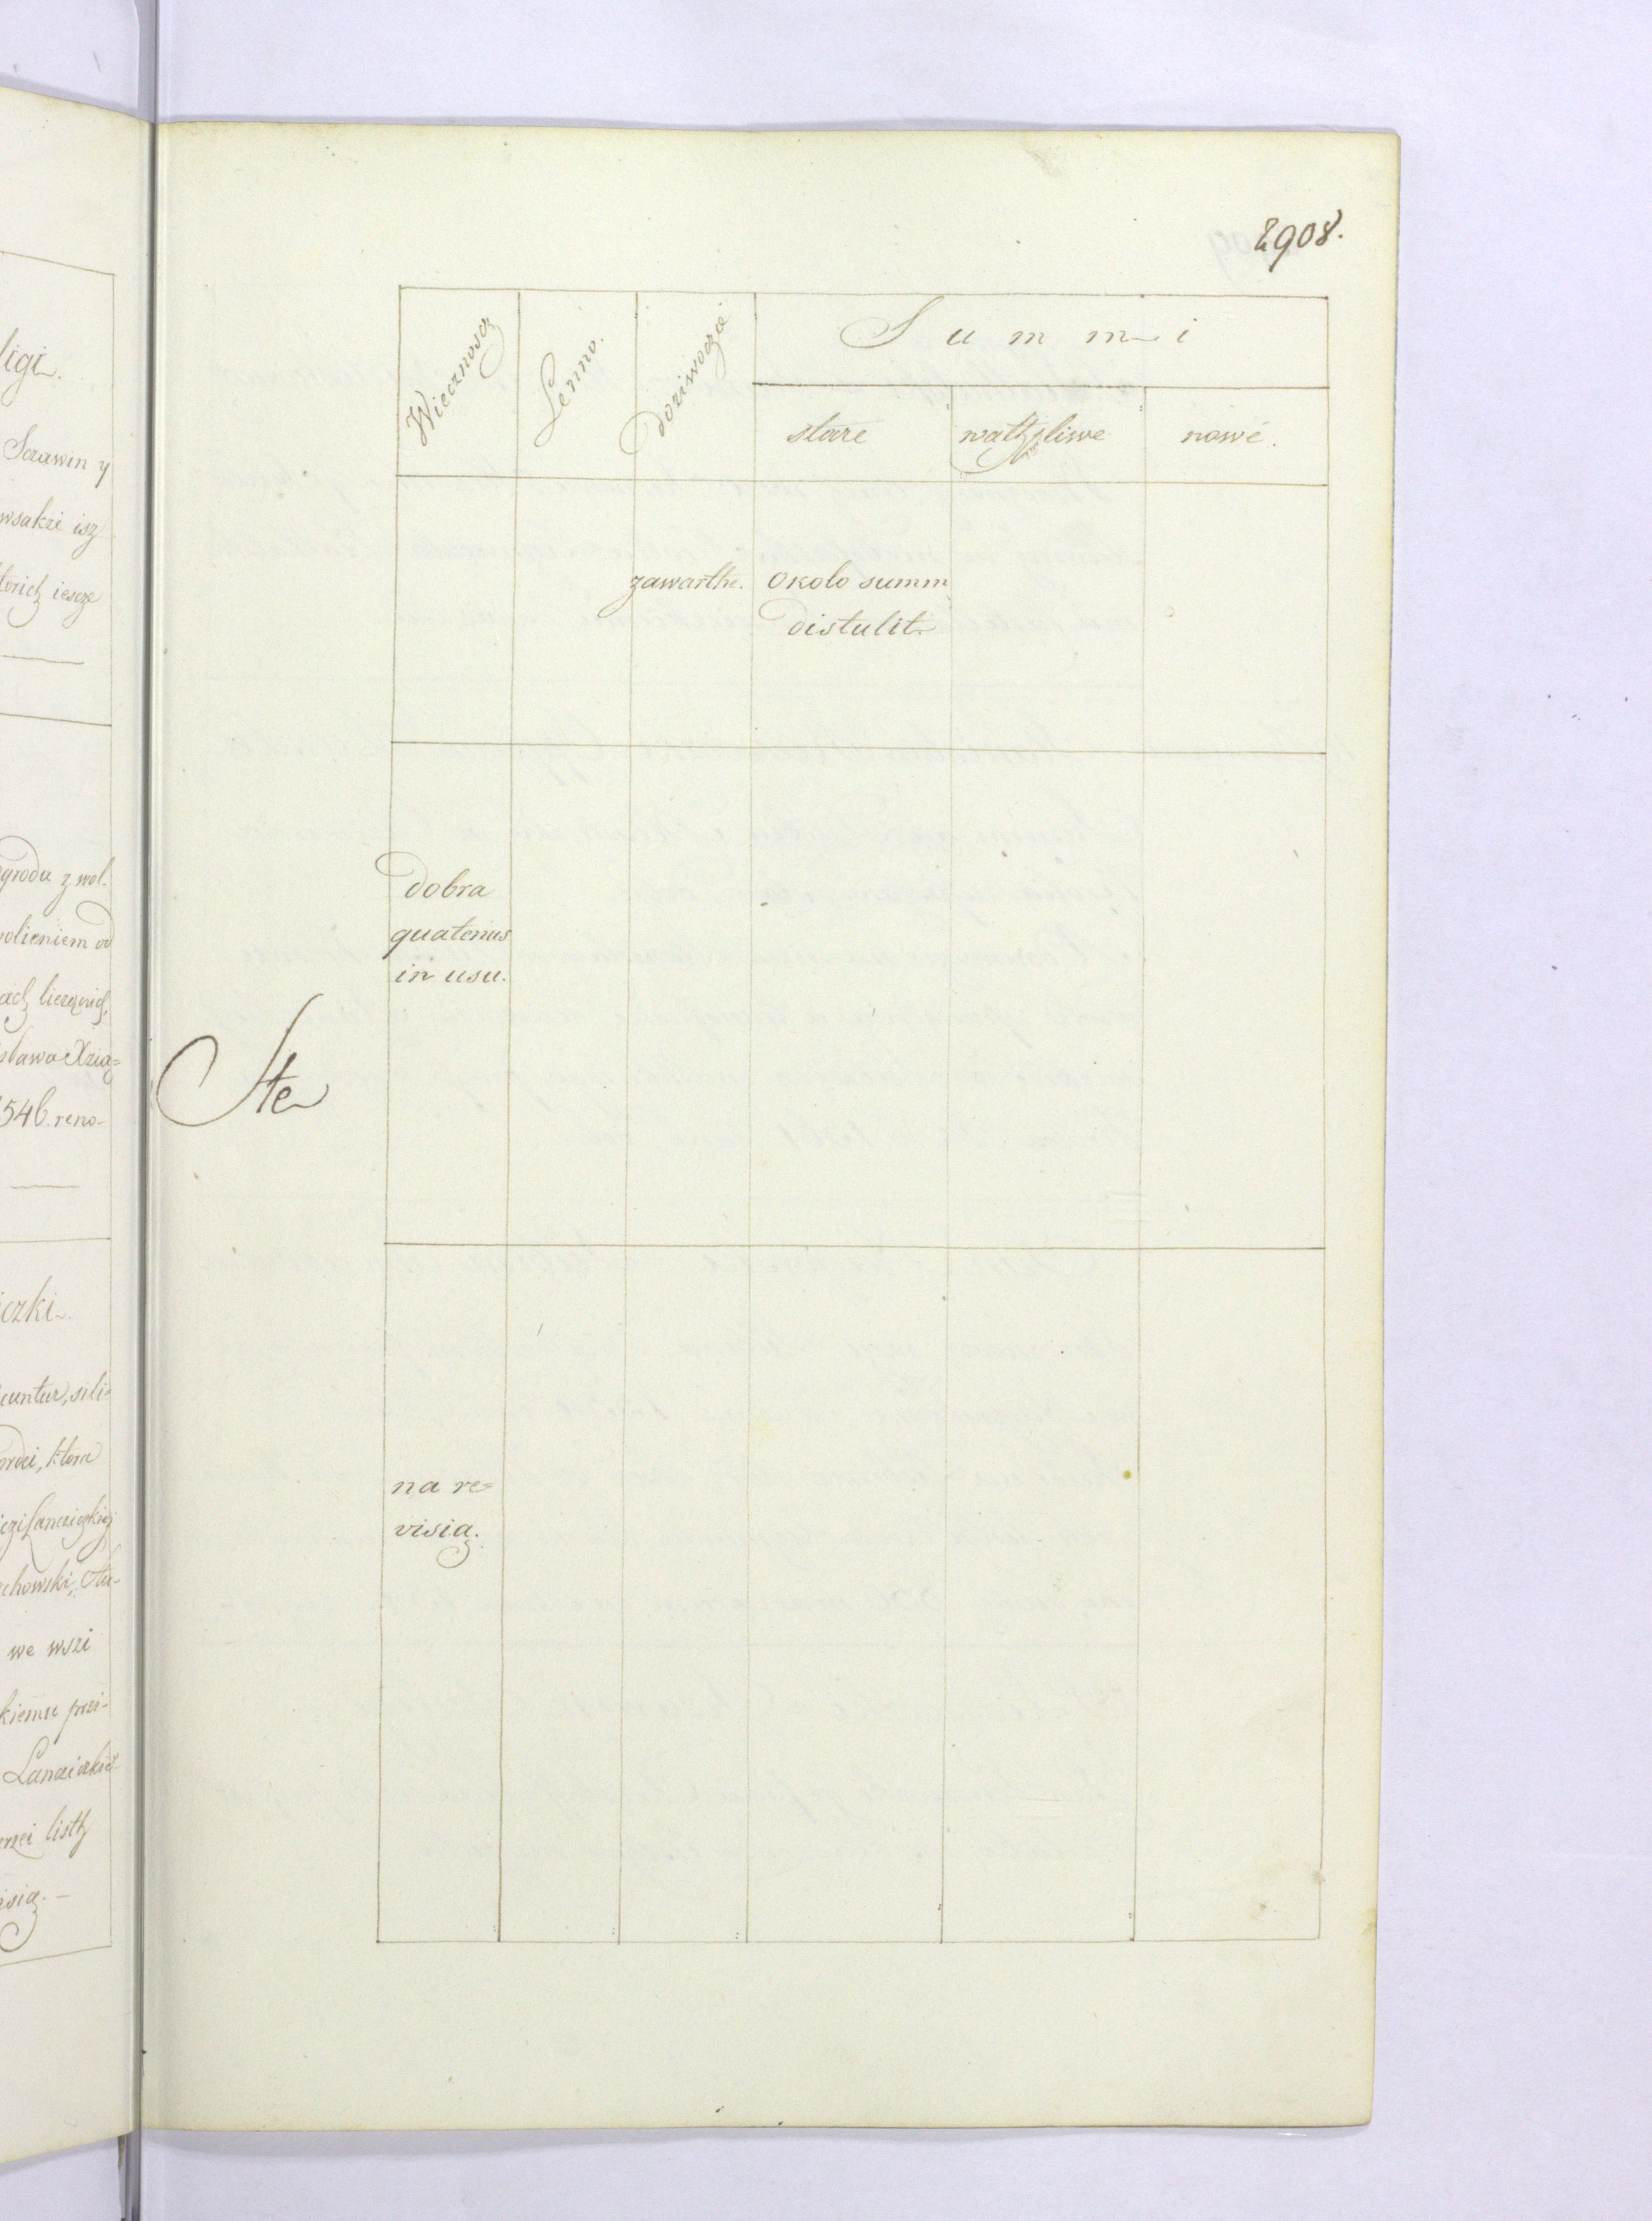 ligi.
Sczawin y
wsakze isz
torich iescze
grodu z wol.
wolieniem od
ach liczonich,
slawa Xzia=
546. reno-
iczki.
cuntur, sili-
ordei, ktora
czi Lancziczkiej
chowski,
we wszi
kiemu przi-
Lancziczkie
rzei listh
isią.-
2908.
Wiecznoscz
Lenno.
Doziwoczie
Summi
stare
wathpliwe
nowe.
zawarthe.
okolo summ
distulit.
Dobra
quatenus
in usu.
Ste
na re=
visią.